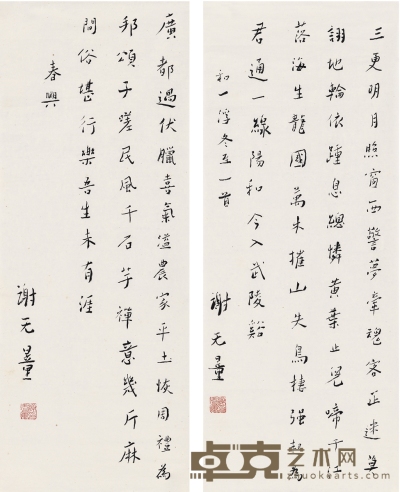 三更明月照窗西警夢牽魂客正迷
翊地輪依踵息總憐黃葉止兒啼千江
落海生龍國萬木摧山失鳥棲強起為
君通一線陽和今入武陵谿
和一浮冬至一首
謝无量
廣都過伏臘喜氣溢農家平土恢周禮為
邦頌子嗟民風千石芋禪意幾斤麻
問俗堪行樂吾生未有涯
春興
謝无量
卓克艺术网
zhuokearts.com